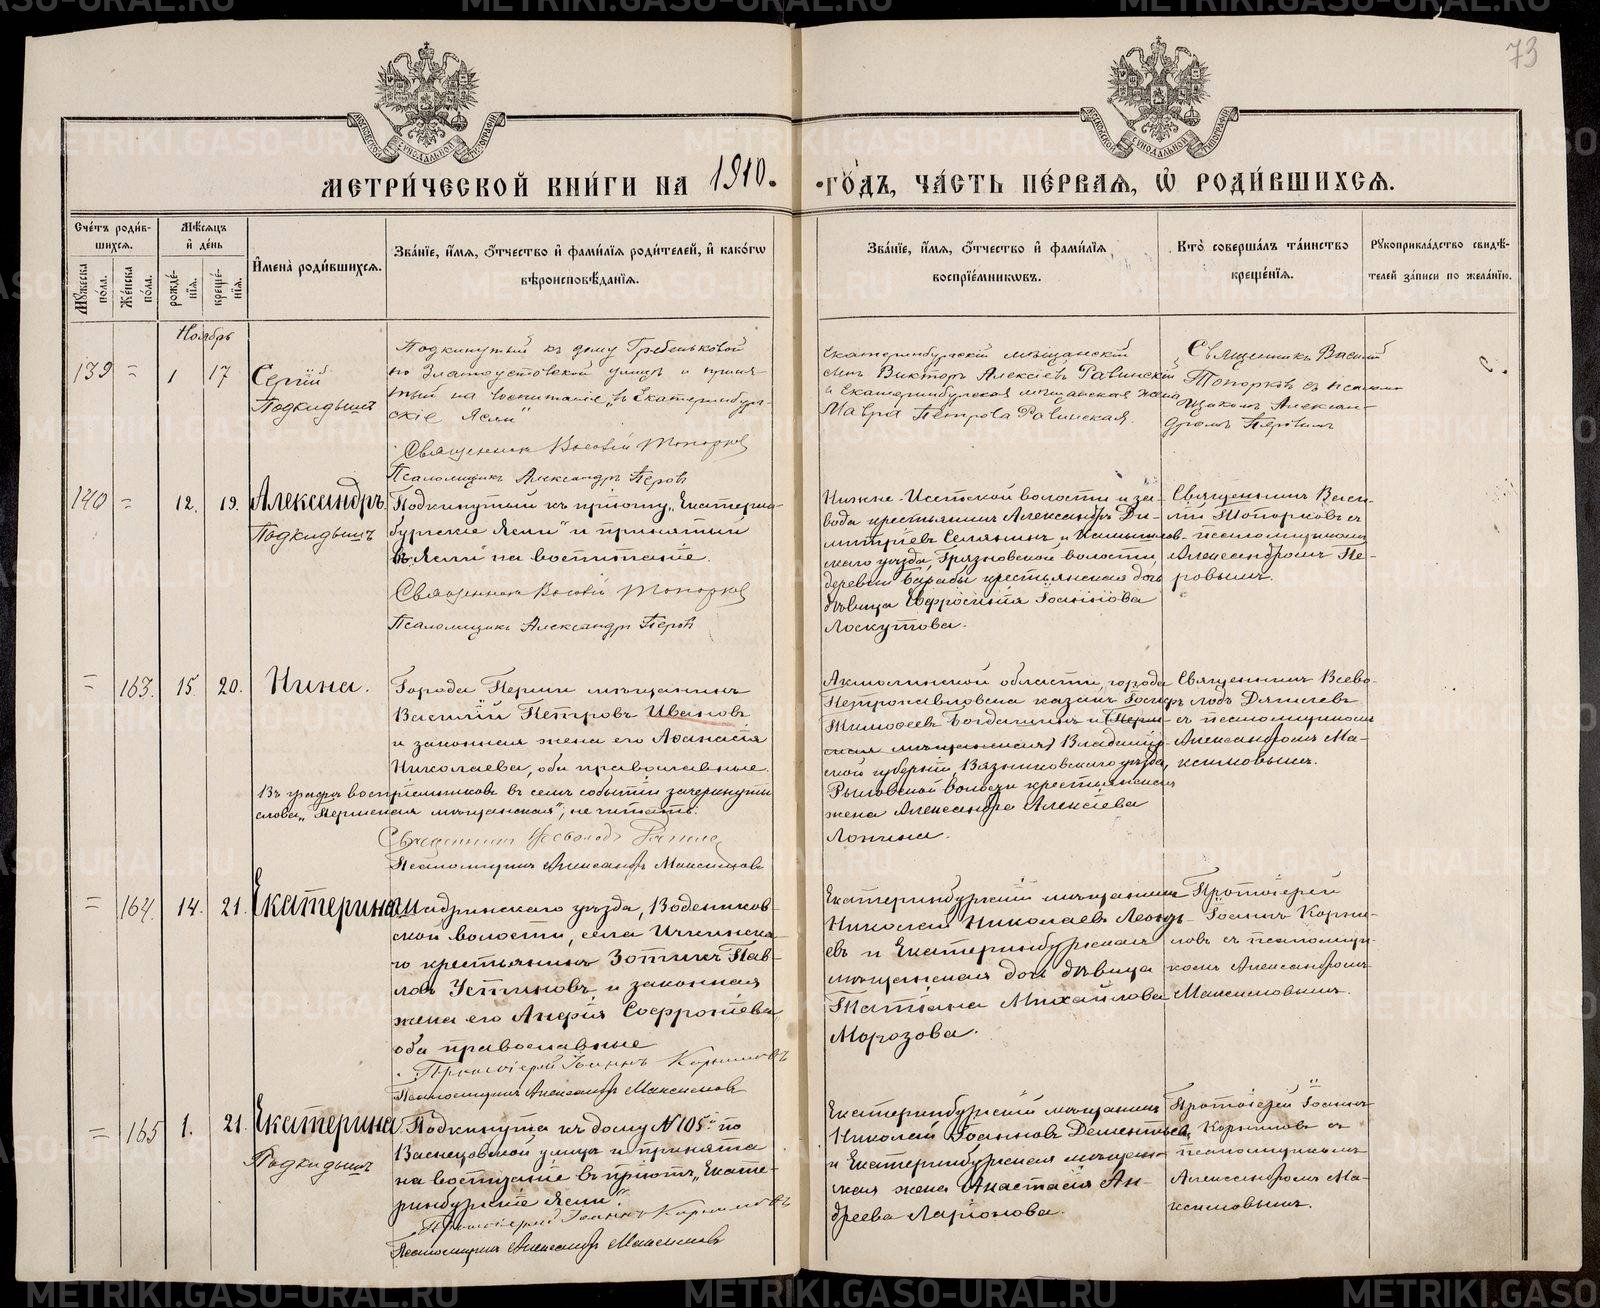 73
МЕТРИ́ЧЕСКОЙ КНИ́ГИ НА 1910.
ГО́ДЪ, ЧА́СТЬ ПЕ́РВАЯ, Ѡ҆ РОДИ́ВШИХСЯ.
Сче́тъ роди́вшихся.
Му́жеска по́ла.
Же́нска по́ла.
Мѣ́сяцъ и҆ де́нь
рожде́нїя.
креще́нїя.
И҆мена̀ роди́вшихся.
Зва́нїе, и҆́мя, ѻ҆́тчество и҆ фами́лїя роди́телей, и҆ како́гѡ
вѣроисповѣ́данїя.
Зва́нїе, и҆́мя, ѻ҆́тчество и҆ фами́лїя
воспрїе́мникѡвъ.
Кто̀ соверша́лъ та́инство
креще́нїя.
Рꙋкоприкла́дство свидѣ́-
телей за́писи по жела́нїю.
Ноябрь
139 = 1 17
Сергій
Подкидышъ
Подкинутый къ дому Гребеньковой
по Златоустовской улицѣ и приня-
тый на воспитаніе „въ Екатеринбург-
скіе Ясли“
Священникъ Василій Топорковъ
Псаломщикъ Александръ Перовъ
Екатеринбургскій мѣщанскій
сынъ Викторъ Алексіевъ Равинскій
и Екатеринбургская мѣщанская жена
Мавра Петрова Равинская.
Священникъ Василій
Топорковъ съ псалом-
щикомъ Алексан-
дромъ Перовымъ
140 = 12. 19.
Александръ
Подкидышъ
Подкинутый къ пріюту „Екатерин-
бургскіе Ясли“ и принятый
въ Ясли на воспитаніе.
Священникъ Василій Топорковъ
Псаломщикъ Александръ Перовъ
Нижне-Исетской волости и за-
вода крестьянинъ Александръ Ди-
митріевъ Селянинъ и Камышлов-
скаго уѣзда, Грязновской волости,
деревни Барабы крестьянская дочь
дѣвица Евфросинія Іоаннова
Лоскутова.
Священникъ Васи-
лій Топорковъ съ
псаломщикомъ
Александромъ Пе-
ровымъ.
= 163. 15. 20.
Нина.
Города Перми мѣщанинъ
Василій Петровъ Ивановъ
и законная жена его Аѳанасія
Николаева, оба православные.
Въ графѣ воспріемниковъ въ семъ событіи зачеркнуты
слова „Пермская мѣщанская“, не читать.
Священникъ Всеволодъ
Псаломщикъ Александръ Максимовъ
Акмолинской области, города
Петропавловска казакъ
Тимоѳеевъ Богдашинъ и (Перм-
ская мѣщанская) Владимір-
ской губерніи, Вязниковскаго уѣзда,
Рыловской волости крестьянская
жена Александра Алексіева
Лопина.
Священникъ Всево-
лодъ
съ псаломщикомъ
Александромъ Ма-
ксимовымъ.
= 164. 14. 21.
Екатерина
Шадринскаго уѣзда, Водеников-
ской волости, села Ичкинска-
го крестьянинъ Зотикъ Пав-
ловъ Устиновъ и законная
жена его Анфія Софроніева,
оба православные
Протоіерей Іоаннъ Корниловъ
Псаломщикъ Александръ Максимовъ
Екатеринбургскій мѣщанинъ
Николай Николаевъ Леонть-
евъ и Екатеринбургская
мѣщанская дочь дѣвица
Татіана Михайлова
Морозова.
Протоіерей
Іоаннъ Корни-
ловъ съ псаломщи-
комъ Александромъ
Максимовымъ.
= 165 1. 21.
Екатерина
Подкидышъ
Подкинута къ дому №105й по
Васнецовской улицѣ и принята
на воспитаніе въ пріютъ „Екате-
ринбургскіе Ясли“.
Протоіерей Іоаннъ Корниловъ
Псаломщикъ Александръ Максимовъ
Екатеринбургскій мѣщанинъ
Николай Іоанновъ Дементьевъ
и Екатеринбургская мѣщан-
ская жена Анастасія Ан-
дреева Ларіонова.
Протоіерей Іоаннъ
Корниловъ съ
псаломщикомъ
Александромъ Ма-
ксимовымъ.
METRIKI.GASO-URAL.RU